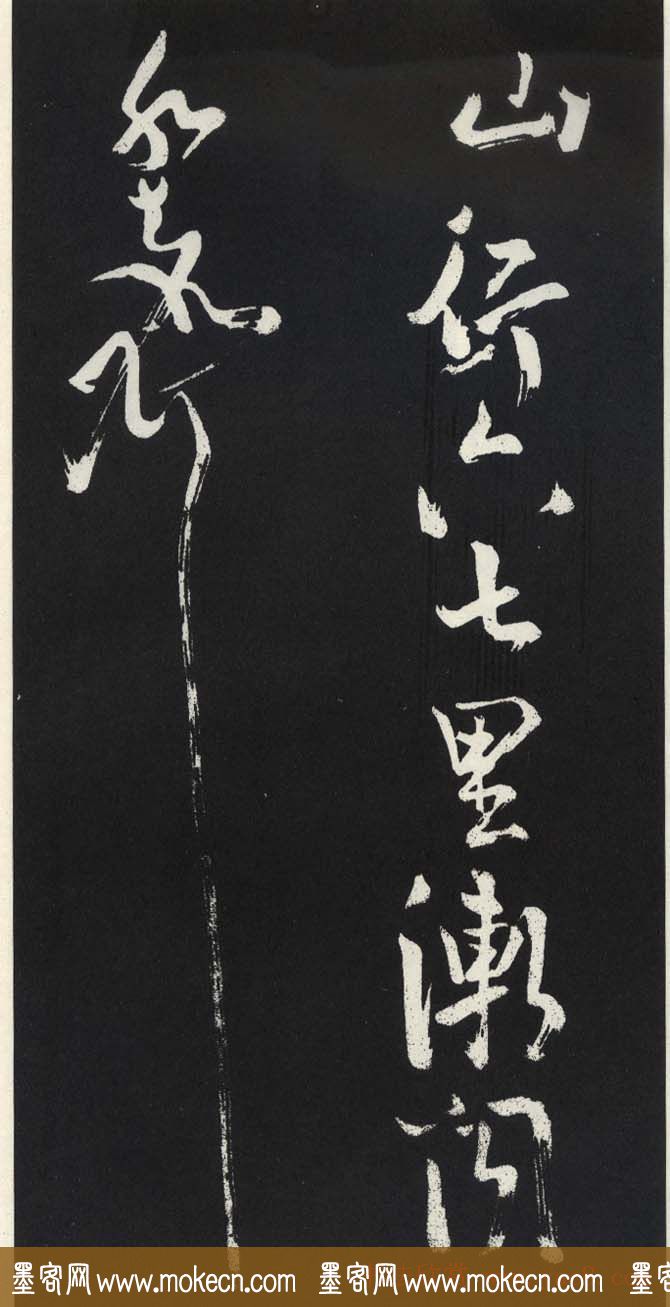 山行六七里渐闻
水声
墨客网 www.mokecn.com 墨客网 www.mokecn.com 墨客